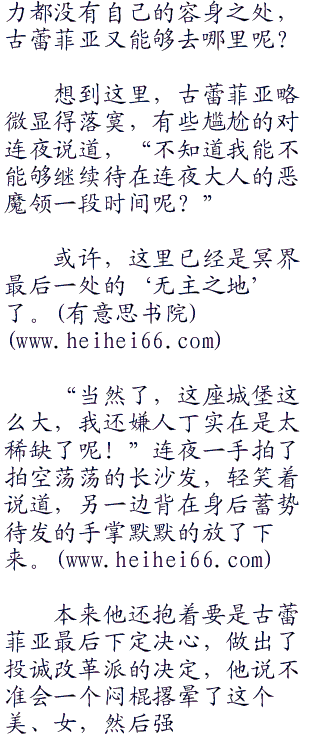 力都没有自己的容身之处，
古蕾菲亚又能够去哪里呢？
想到这里，古蕾菲亚略
微显得落寞，有些尴尬的对
连夜说道，“不知道我能不
能够继续待在连夜大人的恶
魔领一段时间呢？”
或许，这里已经是冥界
最后一处的‘无主之地’
了。(有意思书院)
(www.heihei66.com)
“当然了，这座城堡这
么大，我还嫌人丁实在是太
稀缺了呢！”连夜一手拍了
拍空荡荡的长沙发，轻笑着
说道，另一边背在身后蓄势
待发的手掌默默的放了下
来。(www.heihei66.com)
本来他还抱着要是古蕾
菲亚最后下定决心，做出了
投诚改革派的决定，他说不
准会一个闷棍撂晕了这个
美、女，然后强